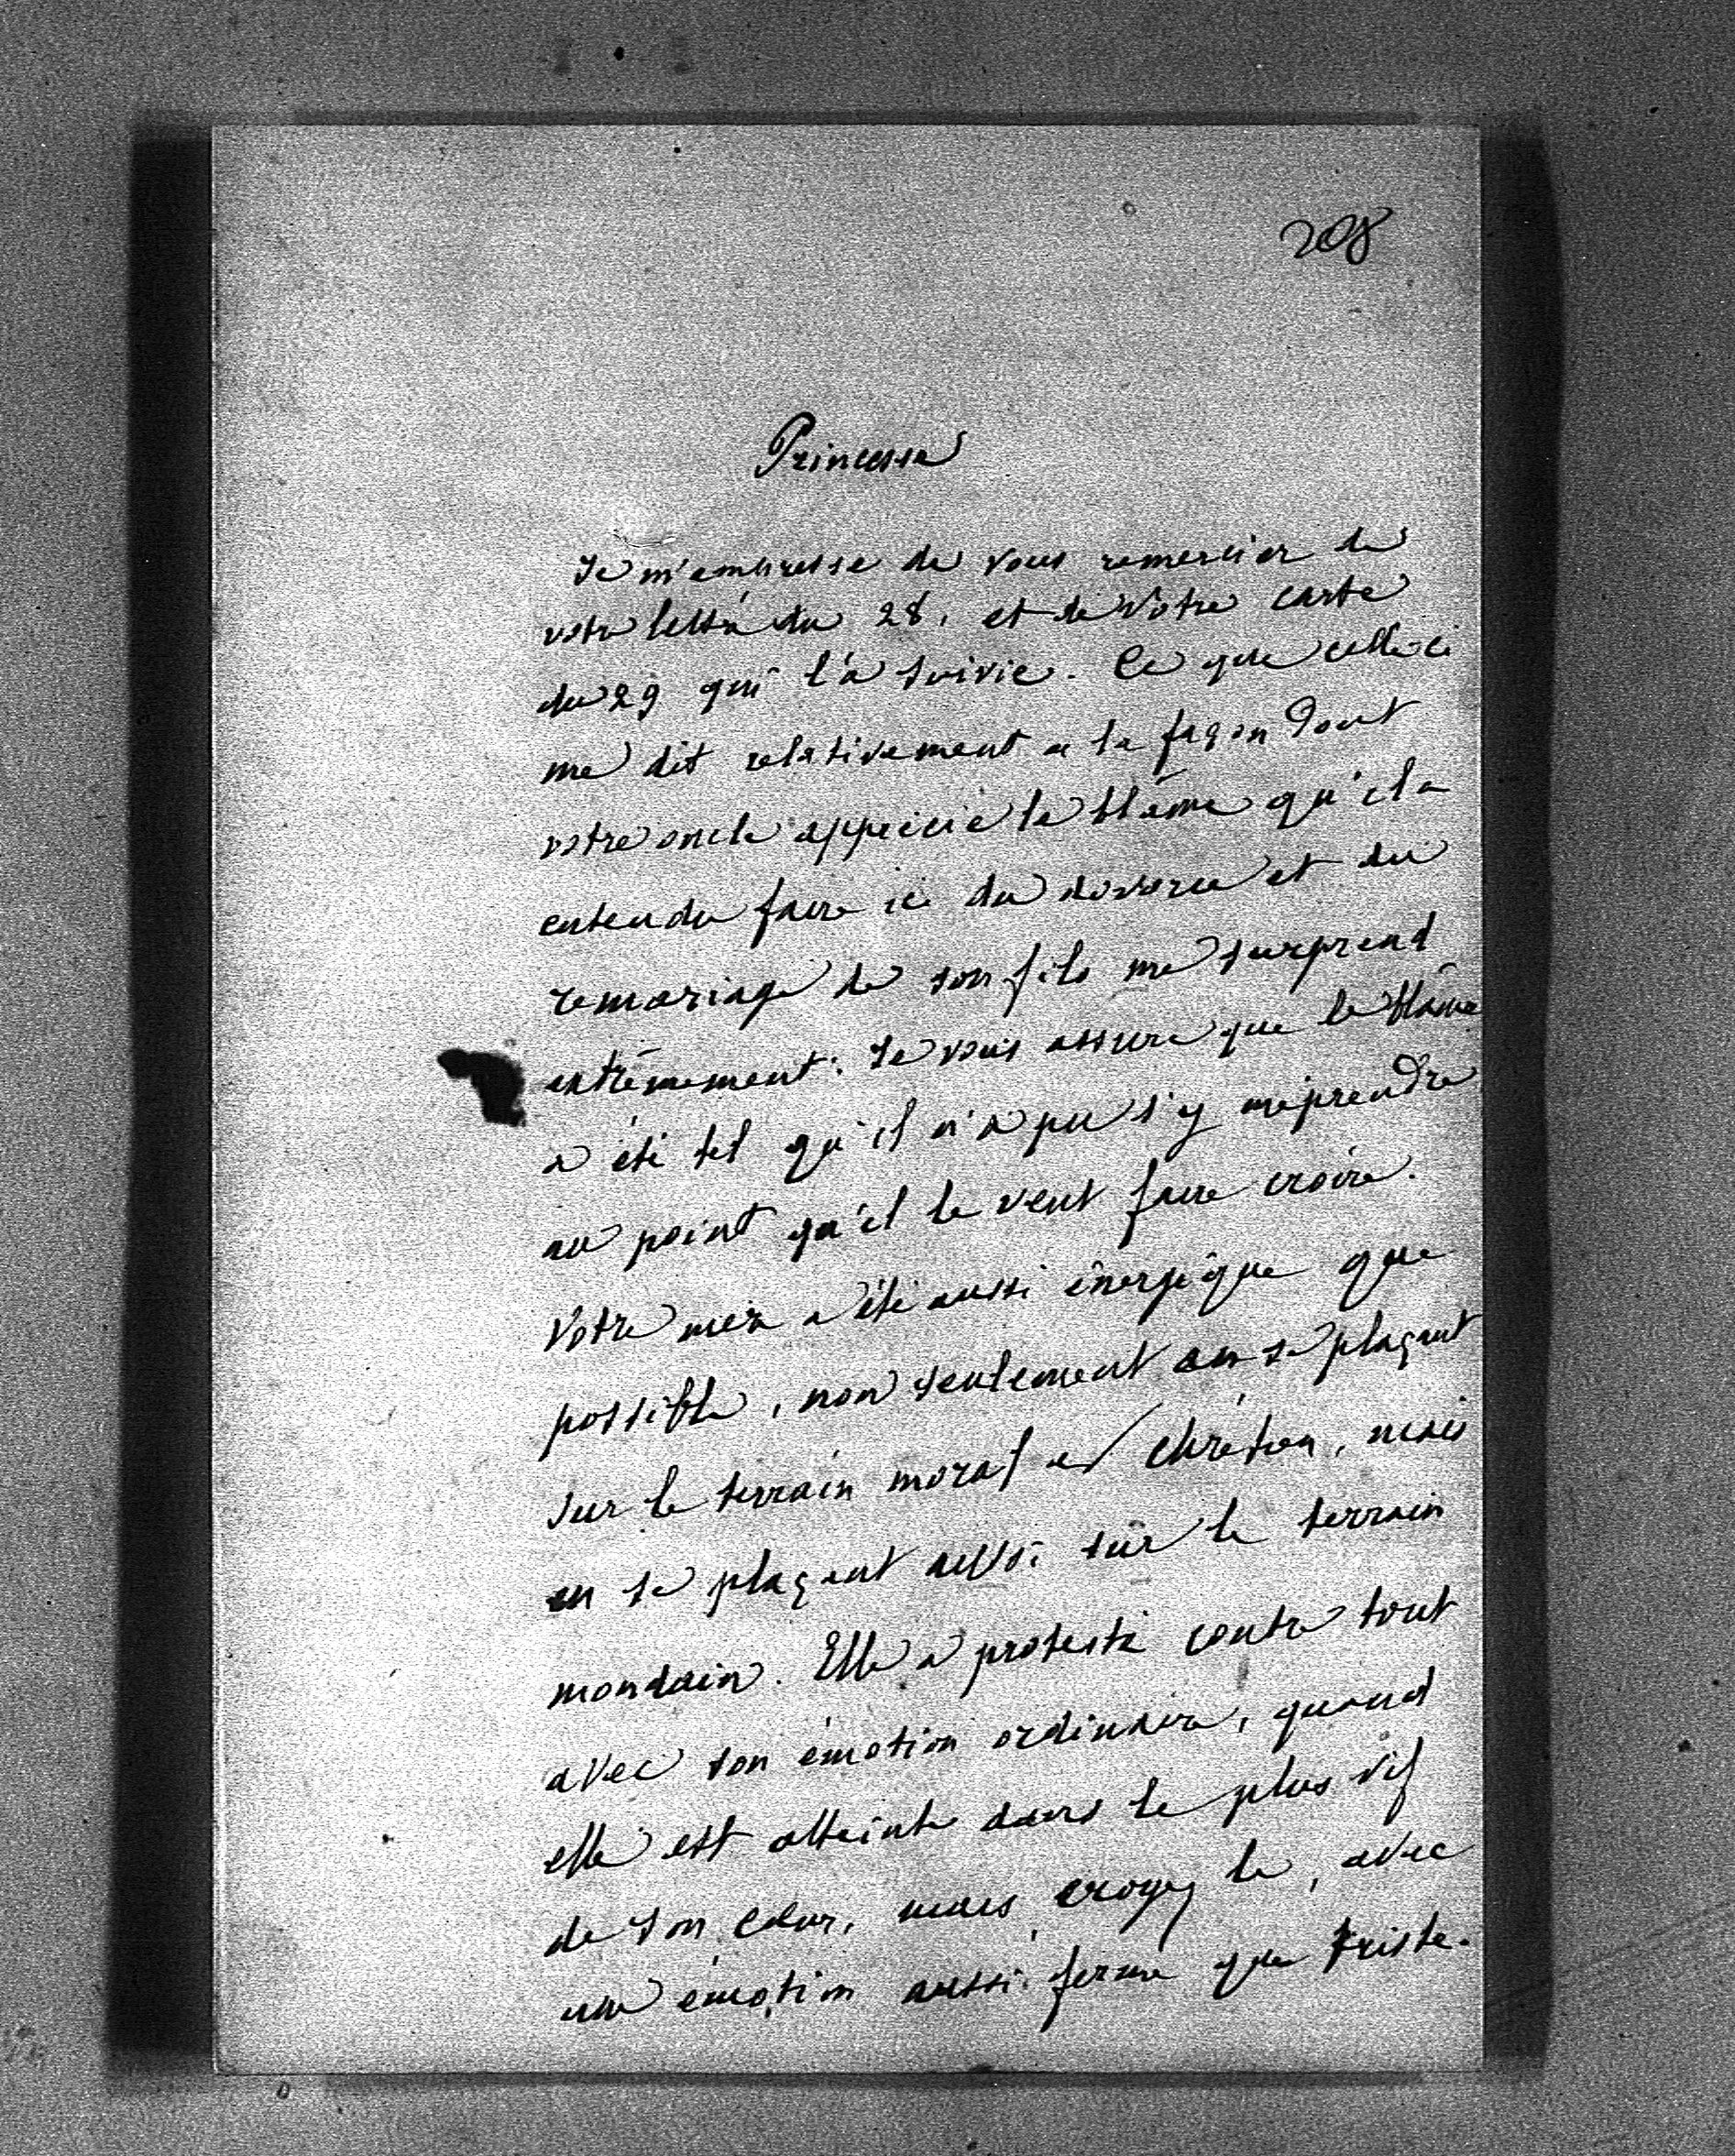 208
Princesse
Je m'empresse de vous remercier de
votre lettre du 28, et de Votre carte
du 29 qui l'a suivie. Ce que celle-ci
me dit relativement a la façon dont
votre oncle apprécie le blâme qu'il a
entendu faire ici du divorce et du
remariage de son fils me surprend
extrêmement. Je vous assure que le blâme
a été tel qu'il n'a pu s'y méprendre
au point qu'il le veut faire croire.
Votre mère a été aussi énergique que
possible, non seulement en se plaçant
sur le terrain moral et chrétien, mais
en se plaçant aussi sur le terrain
mondain. Elle a protesté contre tout
avec son émotion ordinaire, quand
elle est atteinte dans le plus vif
de son cœur, mais croyez le, avec
une émotion aussi ferme que triste.